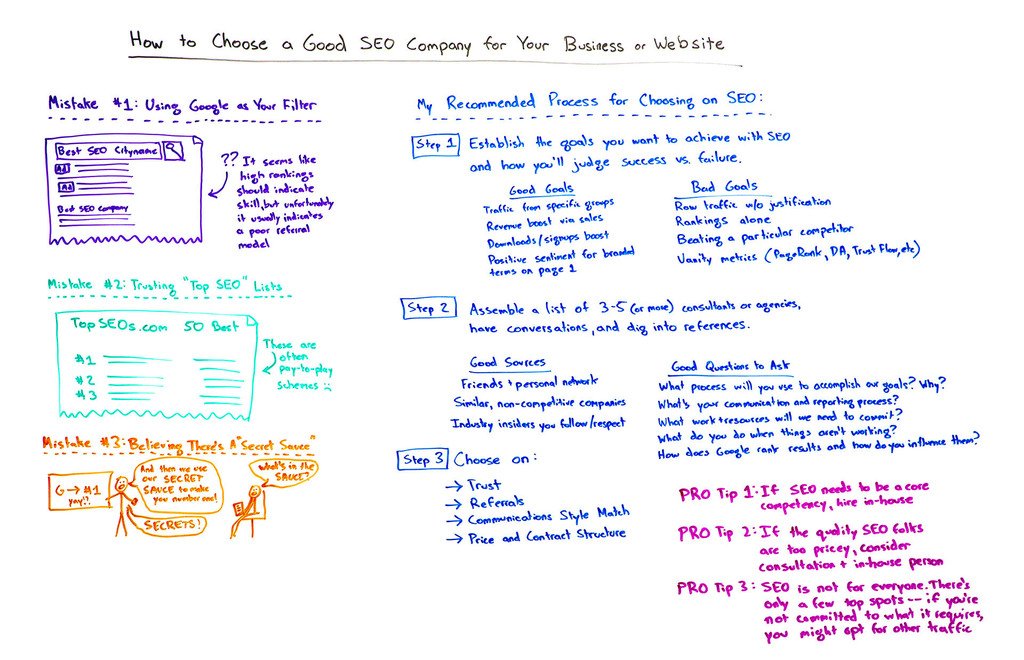 How to Choose a Good SEO Company for Your Business or Website
Mistake #1: Using Google as Your Filter
Best SEO Cityname
Ad
Ad
Best SEO company
?? It seems like
high rankings
should indicate
skill, but unfortunately
it usually indicates
a poor referral
model
Mistake #2: Trusting "Top SEO" Lists
TopSEOs.com 50 Best
#1
#2
#3
These are
often
pay-to-play
schemes :(
Mistake #3: Believing There's A "Secret Sauce"
G → #1
yay!?
And then we use
our SECRET
SAUCE to make
you number one!
SECRETS!
What's in the
SAUCE?
My Recommended Process for Choosing an SEO:
Step 1 Establish the goals you want to achieve with SEO
and how you'll judge success vs. failure.
Good Goals
Traffic from specific groups
Revenue boost via sales
Downloads/signups boost
Positive sentiment for branded
terms on page 1
Bad Goals
Raw traffic w/o justification
Rankings alone
Beating a particular competitor
Vanity metrics (PageRank, DA, Trust Flow, etc)
Step 2 Assemble a list of 3-5 (or more) consultants or agencies,
have conversations, and dig into references.
Good Sources
Friends + personal network
Similar, non-competitive companies
Industry insiders you follow/respect
Good Questions to Ask
What process will you use to accomplish our goals? Why?
What's your communication and reporting process?
What work + resources will we need to commit?
What do you do when things aren't working?
How does Google rank results and how do you influence them?
Step 3 Choose on:
→ Trust
→ Referrals
→ Communications Style Match
→ Price and Contract Structure
PRO Tip 1: If SEO needs to be a core
competency, hire in-house
PRO Tip 2: If the quality SEO folks
are too pricey, consider
consultation + in-house person
PRO Tip 3: SEO is not for everyone. There's
only a few top spots -- if you're
not committed to what it requires,
you might opt for other traffic